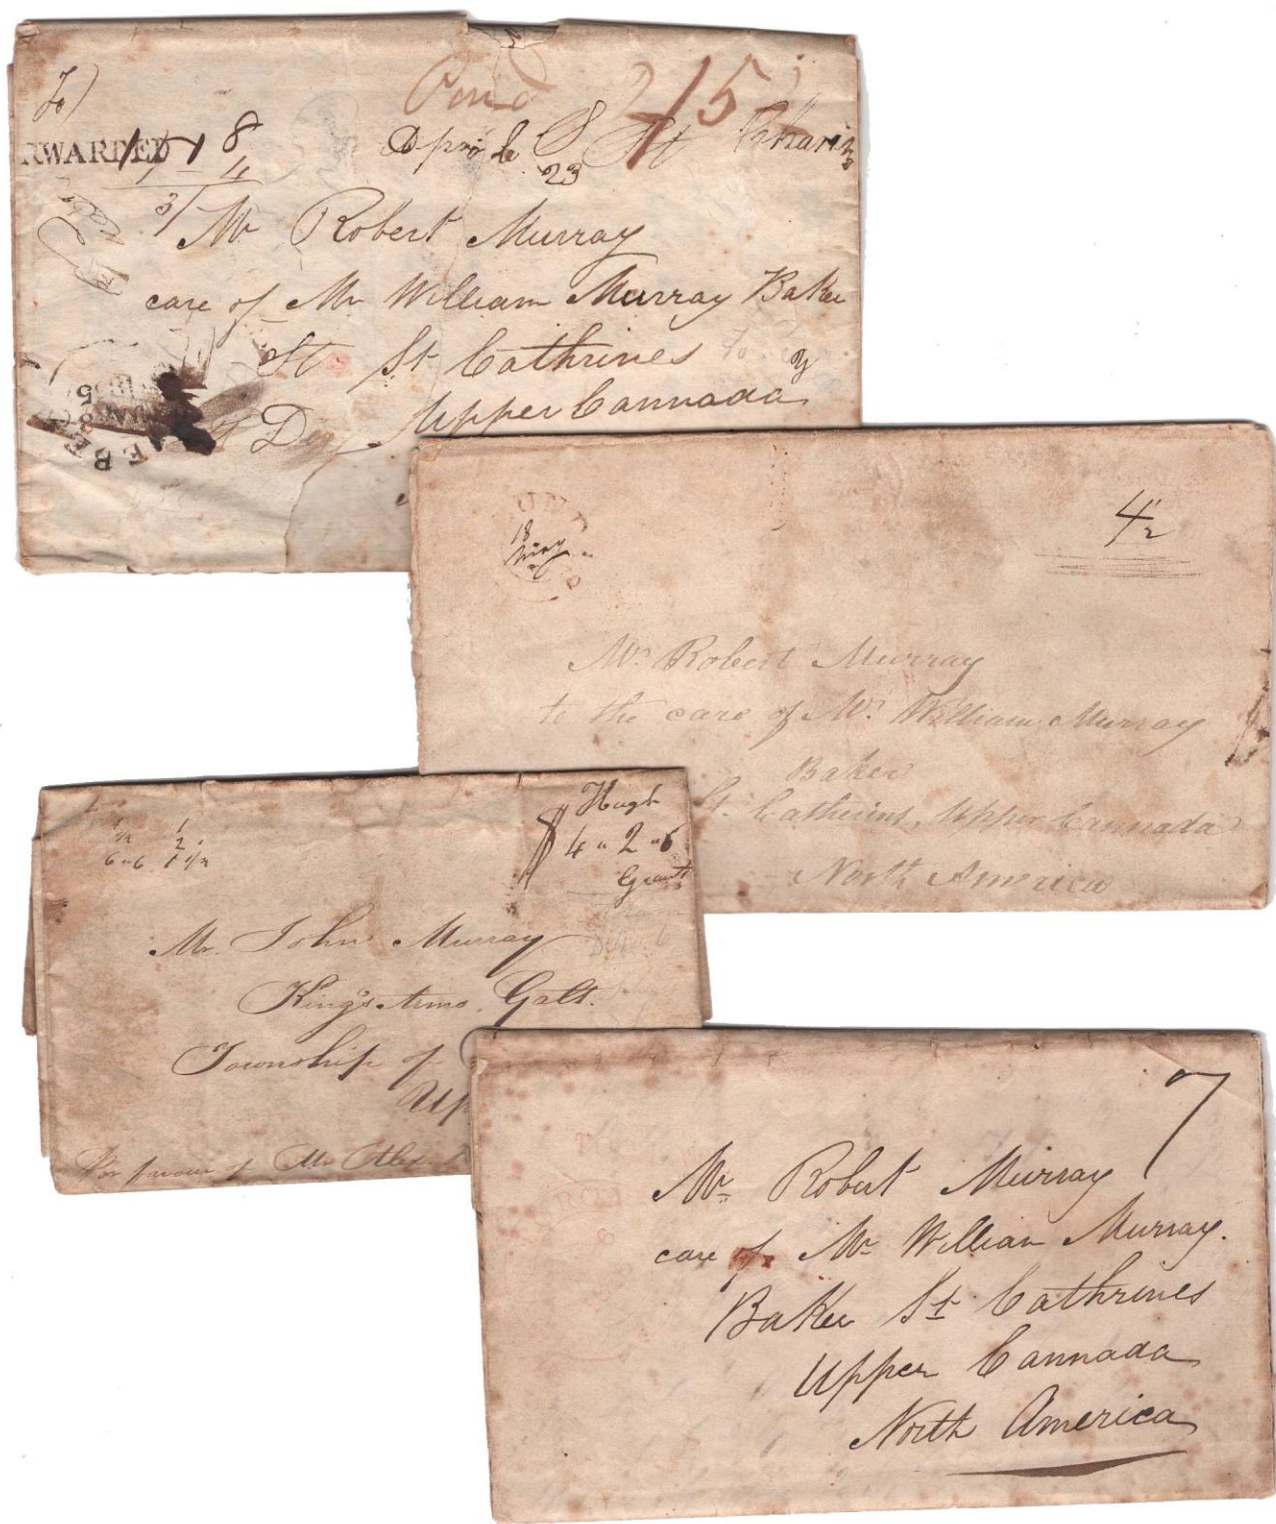 To)
Paid 2/5
RWARDED 8
April 8 St Catharines
23
3/
Mr Robert Murray
care of Mr William Murray Baker
St St Cathrines
Upper Cannada
4½
18
May
Mr. Robert Murray
to the care of Mr. William Murray
Baker
St. Catherins, Upper Cannada
North America
Hugh
4 " 2 " 6
Grant
6 " 6 1 ½
Mr. John Murray
King's Arms, Galt.
Township of
Up
Per favour of Mr Alex
7
Mr Robert Murray
care of Mr William Murray.
Baker St Cathrines
Upper Cannada
North America